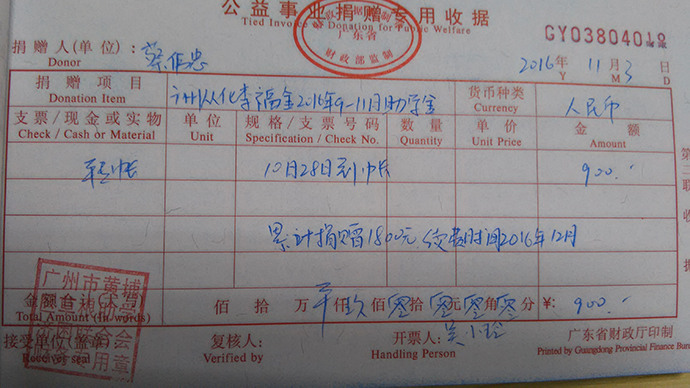 公益事业捐赠专用收据
Tied Invoice Donation for Public Welfare
广东省
财政部监制
GY03804018
捐赠人(单位): 蔡作忠
Donor
2016年 11月 3日
Y M D
捐赠项目 广州从化李福金2016年9-11月助学金 货币种类 人民币
Donation Item Currency
支票/现金或实物 单位 规格/支票号码 数量 单价 金额
Check / Cash or Material Unit Specification / Check No. Quantity Unit Price Amount
转帐 10月28日到帐 900.
累计捐赠1800元 续费时间2016年12月
广州市黄埔
金额合计(大写) 佰 拾 万 仟 玖 佰 零 拾 零 元 零 角 零 分 ¥: 900.
Total Amount (In words)
接受单位(签章) 复核人: 开票人: 吴小玲 广东省财政厅印制
Receiver seal Verified by Handling Person Printed by Guangdong Provincial Finance Bureau
第二联 收据